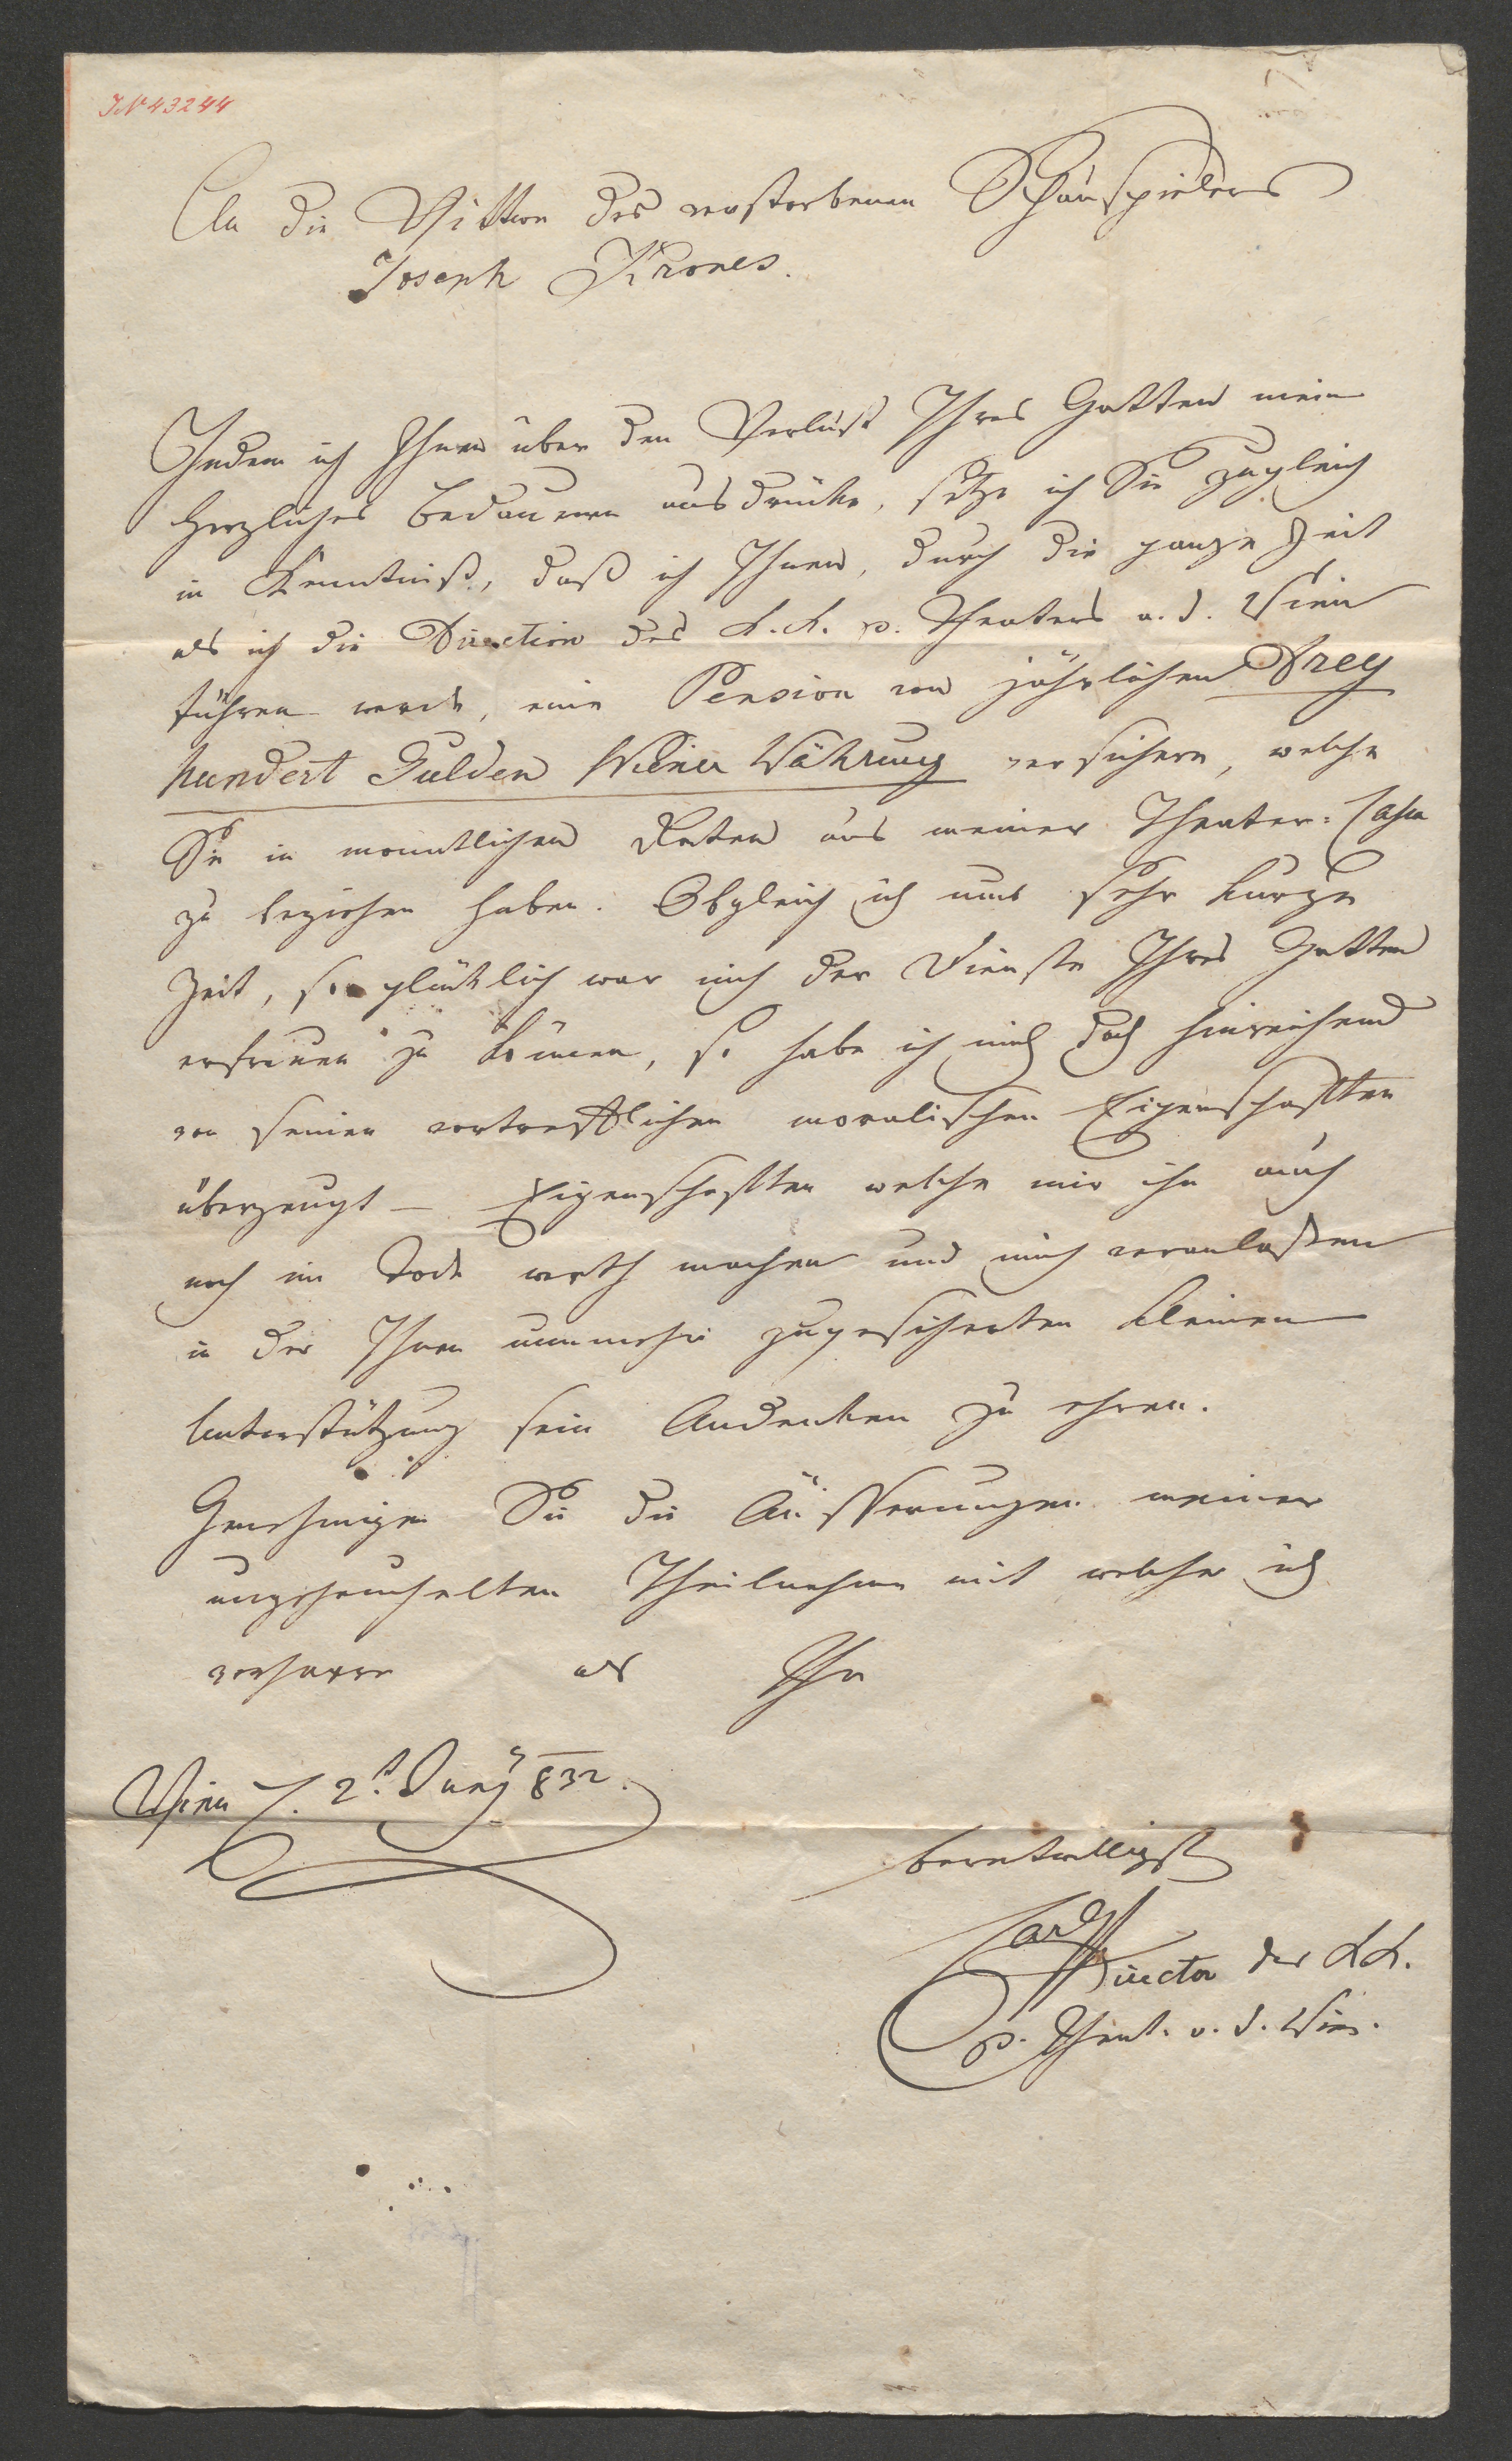 IN 43244
An die Wittwe des verstorbenen Schauspielers
Joseph Krones.
Indem ich Ihnen über den Verlust Ihres Gatten mein
herzliches Bedauern ausdrücke, setze ich Sie zugleich
in Kenntniß, daß ich Ihnen, durch die ganze Zeit
als ich die Direction des k. k. p. Theaters a. d. Wien
führen werde, eine Pension von jährlichen Drey
hundert Gulden Wiener Währung versichere, welche
Sie in monatlichen Raten aus meiner Theater-Cassa
zu beziehen haben. Obgleich ich nur sehr kurze
Zeit, so glücklich war mich der Dienste Ihres Gatten
erfreuen zu können, so habe ich mich doch hinreichend
von seinen vortrefflichen moralischen Eigenschaften
überzeugt – Eigenschaften welche mir ihn auch
noch im Tode werth machen und mich veranlassen
in der Ihnen nunmehr zugesicherten kleinen
Unterstützung sein Andenken zu ehren.
Genehmigen Sie die Äusserungen meiner
ungeheuchelten Theilnahme mit welcher ich
verharre als Ihr
Wien d. 2t. Juny 832.
bereitwilligst
Carl
Director des k. k.
p. Theat. a. d. Wien.